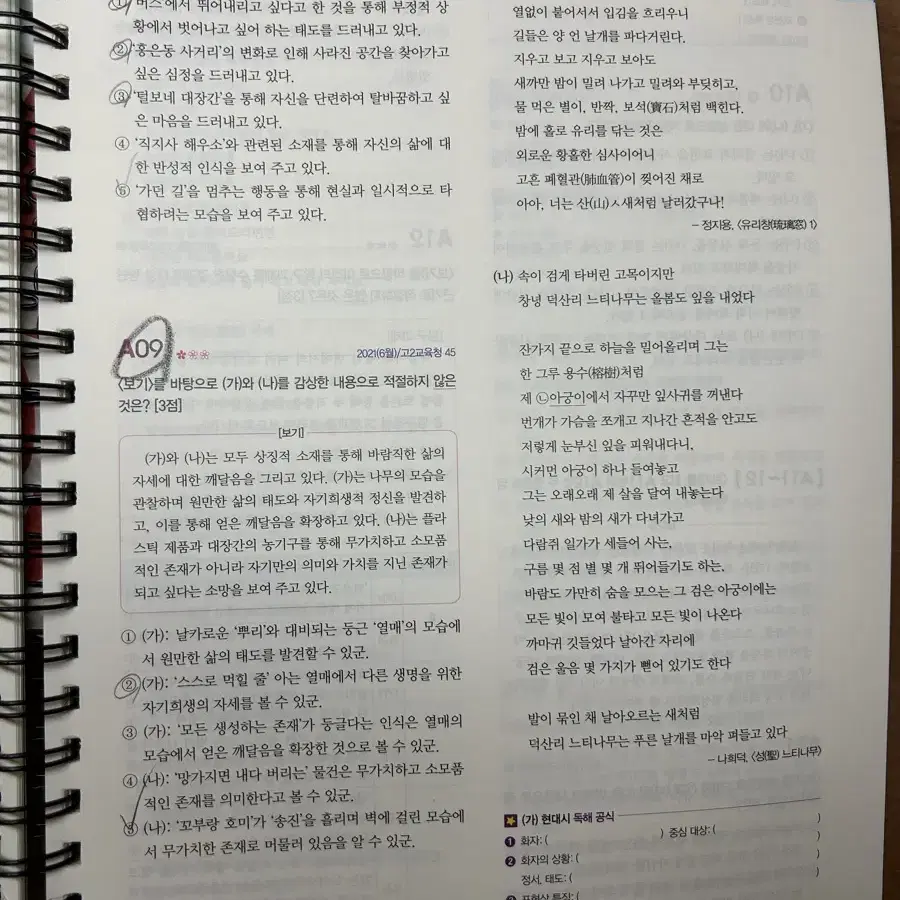 ① '버스'에서 뛰어내리고 싶다고 한 것을 통해 부정적 상
황에서 벗어나고 싶어 하는 태도를 드러내고 있다.
② '홍은동 사거리'의 변화로 인해 사라진 공간을 찾아가고
싶은 심정을 드러내고 있다.
③ '털보네 대장간'을 통해 자신을 단련하여 탈바꿈하고 싶
은 마음을 드러내고 있다.
④ '직지사 해우소'와 관련된 소재를 통해 자신의 삶에 대
한 반성적 인식을 보여 주고 있다.
⑤ '가던 길'을 멈추는 행동을 통해 현실과 일시적으로 타
협하려는 모습을 보여 주고 있다.
A09
2021(6월)/고2교육청 45
<보기>를 바탕으로 (가)와 (나)를 감상한 내용으로 적절하지 않은
것은? [3점]
[보기]
(가)와 (나)는 모두 상징적 소재를 통해 바람직한 삶의
자세에 대한 깨달음을 그리고 있다. (가)는 나무의 모습을
관찰하며 원만한 삶의 태도와 자기희생적 정신을 발견하
고, 이를 통해 얻은 깨달음을 확장하고 있다. (나)는 플라
스틱 제품과 대장간의 농기구를 통해 무가치하고 소모품
적인 존재가 아니라 자기만의 의미와 가치를 지닌 존재가
되고 싶다는 소망을 보여 주고 있다.
① (가): 날카로운 '뿌리'와 대비되는 둥근 '열매'의 모습에
서 원만한 삶의 태도를 발견할 수 있군.
② (가): '스스로 먹힐 줄' 아는 열매에서 다른 생명을 위한
자기희생의 자세를 볼 수 있군.
③ (가): '모든 생성하는 존재'가 둥글다는 인식은 열매의
모습에서 얻은 깨달음을 확장한 것으로 볼 수 있군.
④ (나): '망가지면 내다 버리는' 물건은 무가치하고 소모품
적인 존재를 의미한다고 볼 수 있군.
⑤ (나): '꼬부랑 호미'가 '송진'을 흘리며 벽에 걸린 모습에
서 무가치한 존재로 머물러 있음을 알 수 있군.
열없이 붙어서서 입김을 흐리우니
길들은 양 언 날개를 파다거린다.
지우고 보고 지우고 보아도
새까만 밤이 밀려 나가고 밀려와 부딪히고,
물 먹은 별이, 반짝, 보석(寶石)처럼 백힌다.
밤에 홀로 유리를 닦는 것은
외로운 황홀한 심사이어니
고흔 폐혈관(肺血管)이 찢어진 채로
아아, 너는 산(山)ㅅ새처럼 날러갔구나!
- 정지용, <유리창(琉璃窓) 1>
(나) 속이 검게 타버린 고목이지만
창녕 덕산리 느티나무는 올봄도 잎을 내었다
잔가지 끝으로 하늘을 밀어올리며 그는
한 그루 용수(榕樹)처럼
제 ㉡아궁이에서 자꾸만 잎사귀를 꺼낸다
번개가 가슴을 쪼개고 지나간 흔적을 안고도
저렇게 눈부신 잎을 피워내다니,
시커먼 아궁이 하나 들여놓고
그는 오래오래 제 살을 달여 내놓는다
낮의 새와 밤의 새가 다녀가고
다람쥐 일가가 세들어 사는,
구름 몇 점 별 몇 개 뛰어들기도 하는,
바람도 가만히 숨을 모으는 그 검은 아궁이에는
모든 빛이 모여 불타고 모든 빛이 나온다
까마귀 깃들었다 날아간 자리에
검은 울음 몇 가지가 뻗어 있기도 한다
발이 묶인 채 날아오르는 새처럼
덕산리 느티나무는 푸른 날개를 마악 펴들고 있다
- 나희덕, <성(聖) 느티나무>
(가) 현대시 독해 공식
❶ 화자: ( ) 중심 대상: ( )
❷ 화자의 상황: ( )
정서, 태도: ( )
❸ 표현상 특징: (